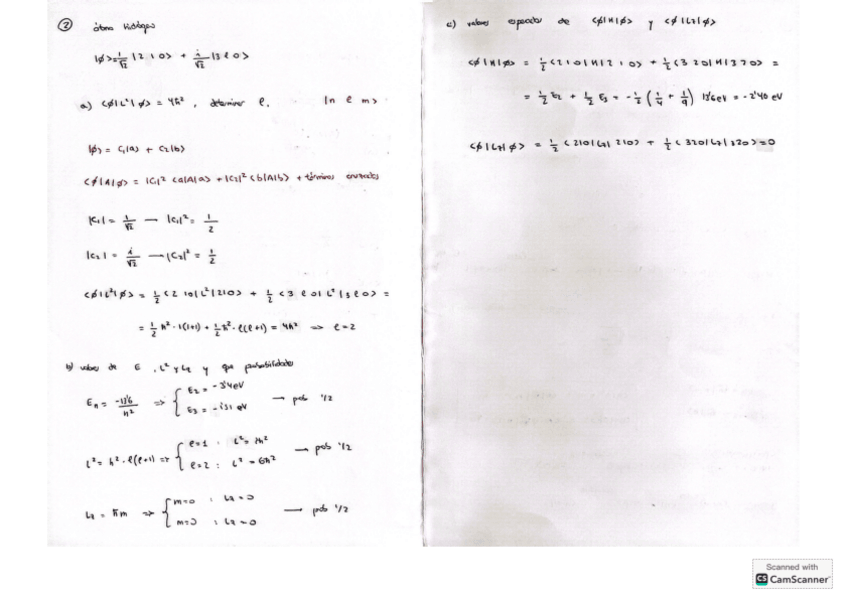 ② átomo hidrógeno
|ϕ> = 1/√2 |2 1 0> + i/√2 |3 ℓ 0>
a) <ϕ|L²|ϕ> = 4ħ², determinar ℓ. |n ℓ m>
|ϕ> = C₁|a> + C₂|b>
<ϕ|A|ϕ> = |C₁|² <a|A|a> + |C₂|² <b|A|b> + términos cruzados
|C₁| = 1/√2 — |C₁|² = 1/2
|C₂| = i/√2 — |C₂|² = 1/2
<ϕ|L²|ϕ> = 1/2 <2 1 0|L²|2 1 0> + 1/2 <3 ℓ 0|L²|3 ℓ 0> =
= 1/2 ħ² · 1(1+1) + 1/2 ħ² · ℓ(ℓ+1) = 4ħ² ⇒ ℓ = 2
b) valores de E, L² y Lz y que probabilidades
En = -13'6/n² ⇒ { E₂ = -3'4 eV
E₃ = -1'51 eV → prob 1/2
L² = ħ² · ℓ(ℓ+1) ⇒ { ℓ=1 : L² = 2ħ²
ℓ=2 : L² = 6ħ² → prob 1/2
Lz = ħm ⇒ { m=0 : Lz = 0
m=0 : Lz = 0 → prob 1/2
c) valores esperados de <ϕ|H|ϕ> y <ϕ|Lz|ϕ>
<ϕ|H|ϕ> = 1/2 <2 1 0|H|2 1 0> + 1/2 <3 2 0|H|3 2 0> =
= 1/2 E₂ + 1/2 E₃ = -1/2 (1/4 + 1/9) 13'6 eV = -2'40 eV
<ϕ|Lz|ϕ> = 1/2 <210|Lz|210> + 1/2 <320|Lz|320> = 0
Scanned with
CS CamScanner